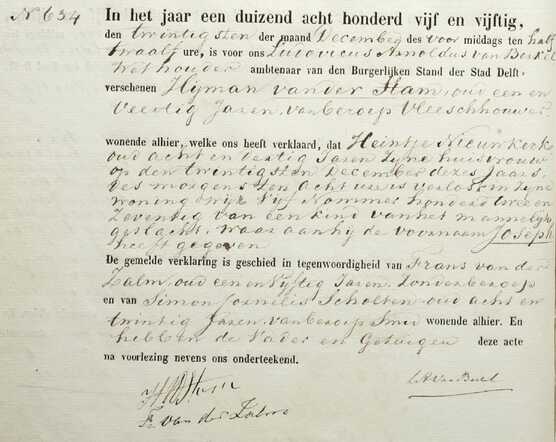 N° 634
In het jaar een duizend acht honderd vijf en vijftig,
den twintigsten der maand December des voor middags ten half
twaalf ure, is voor ons Ludovicus Arnoldus van Berkel
Wethouder ambtenaar van den Burgerlijken Stand der Stad Delft
verschenen Hijman van der Stam, oud een en
Veertig Jaren, van beroep Vleeschhouwer
wonende alhier, welke ons heeft verklaard, dat Heintje Nieuwkerk
oud acht en dertig Jaren zyne huisvrouw
op den twintigsten December dezes Jaars
des morgens ten acht ure is verlost in zyne
woning Wijk Vijf Nommer honderd twee en
Zeventig van een kind van het mannelyk
geslacht, waar aan hij de voornaam Joseph
heeft gegeven
De gemelde verklaring is geschied in tegenwoordigheid van Frans van der
Zalm, oud een en Vyftig Jaren, Zonder beroep
en van Simon Cornelis Scholten oud acht en
twintig Jaren, van beroep Smid wonende alhier. En
hebben de Vader en Getuigen deze acte
na voorlezing nevens ons onderteekend.
F. van der Zalm